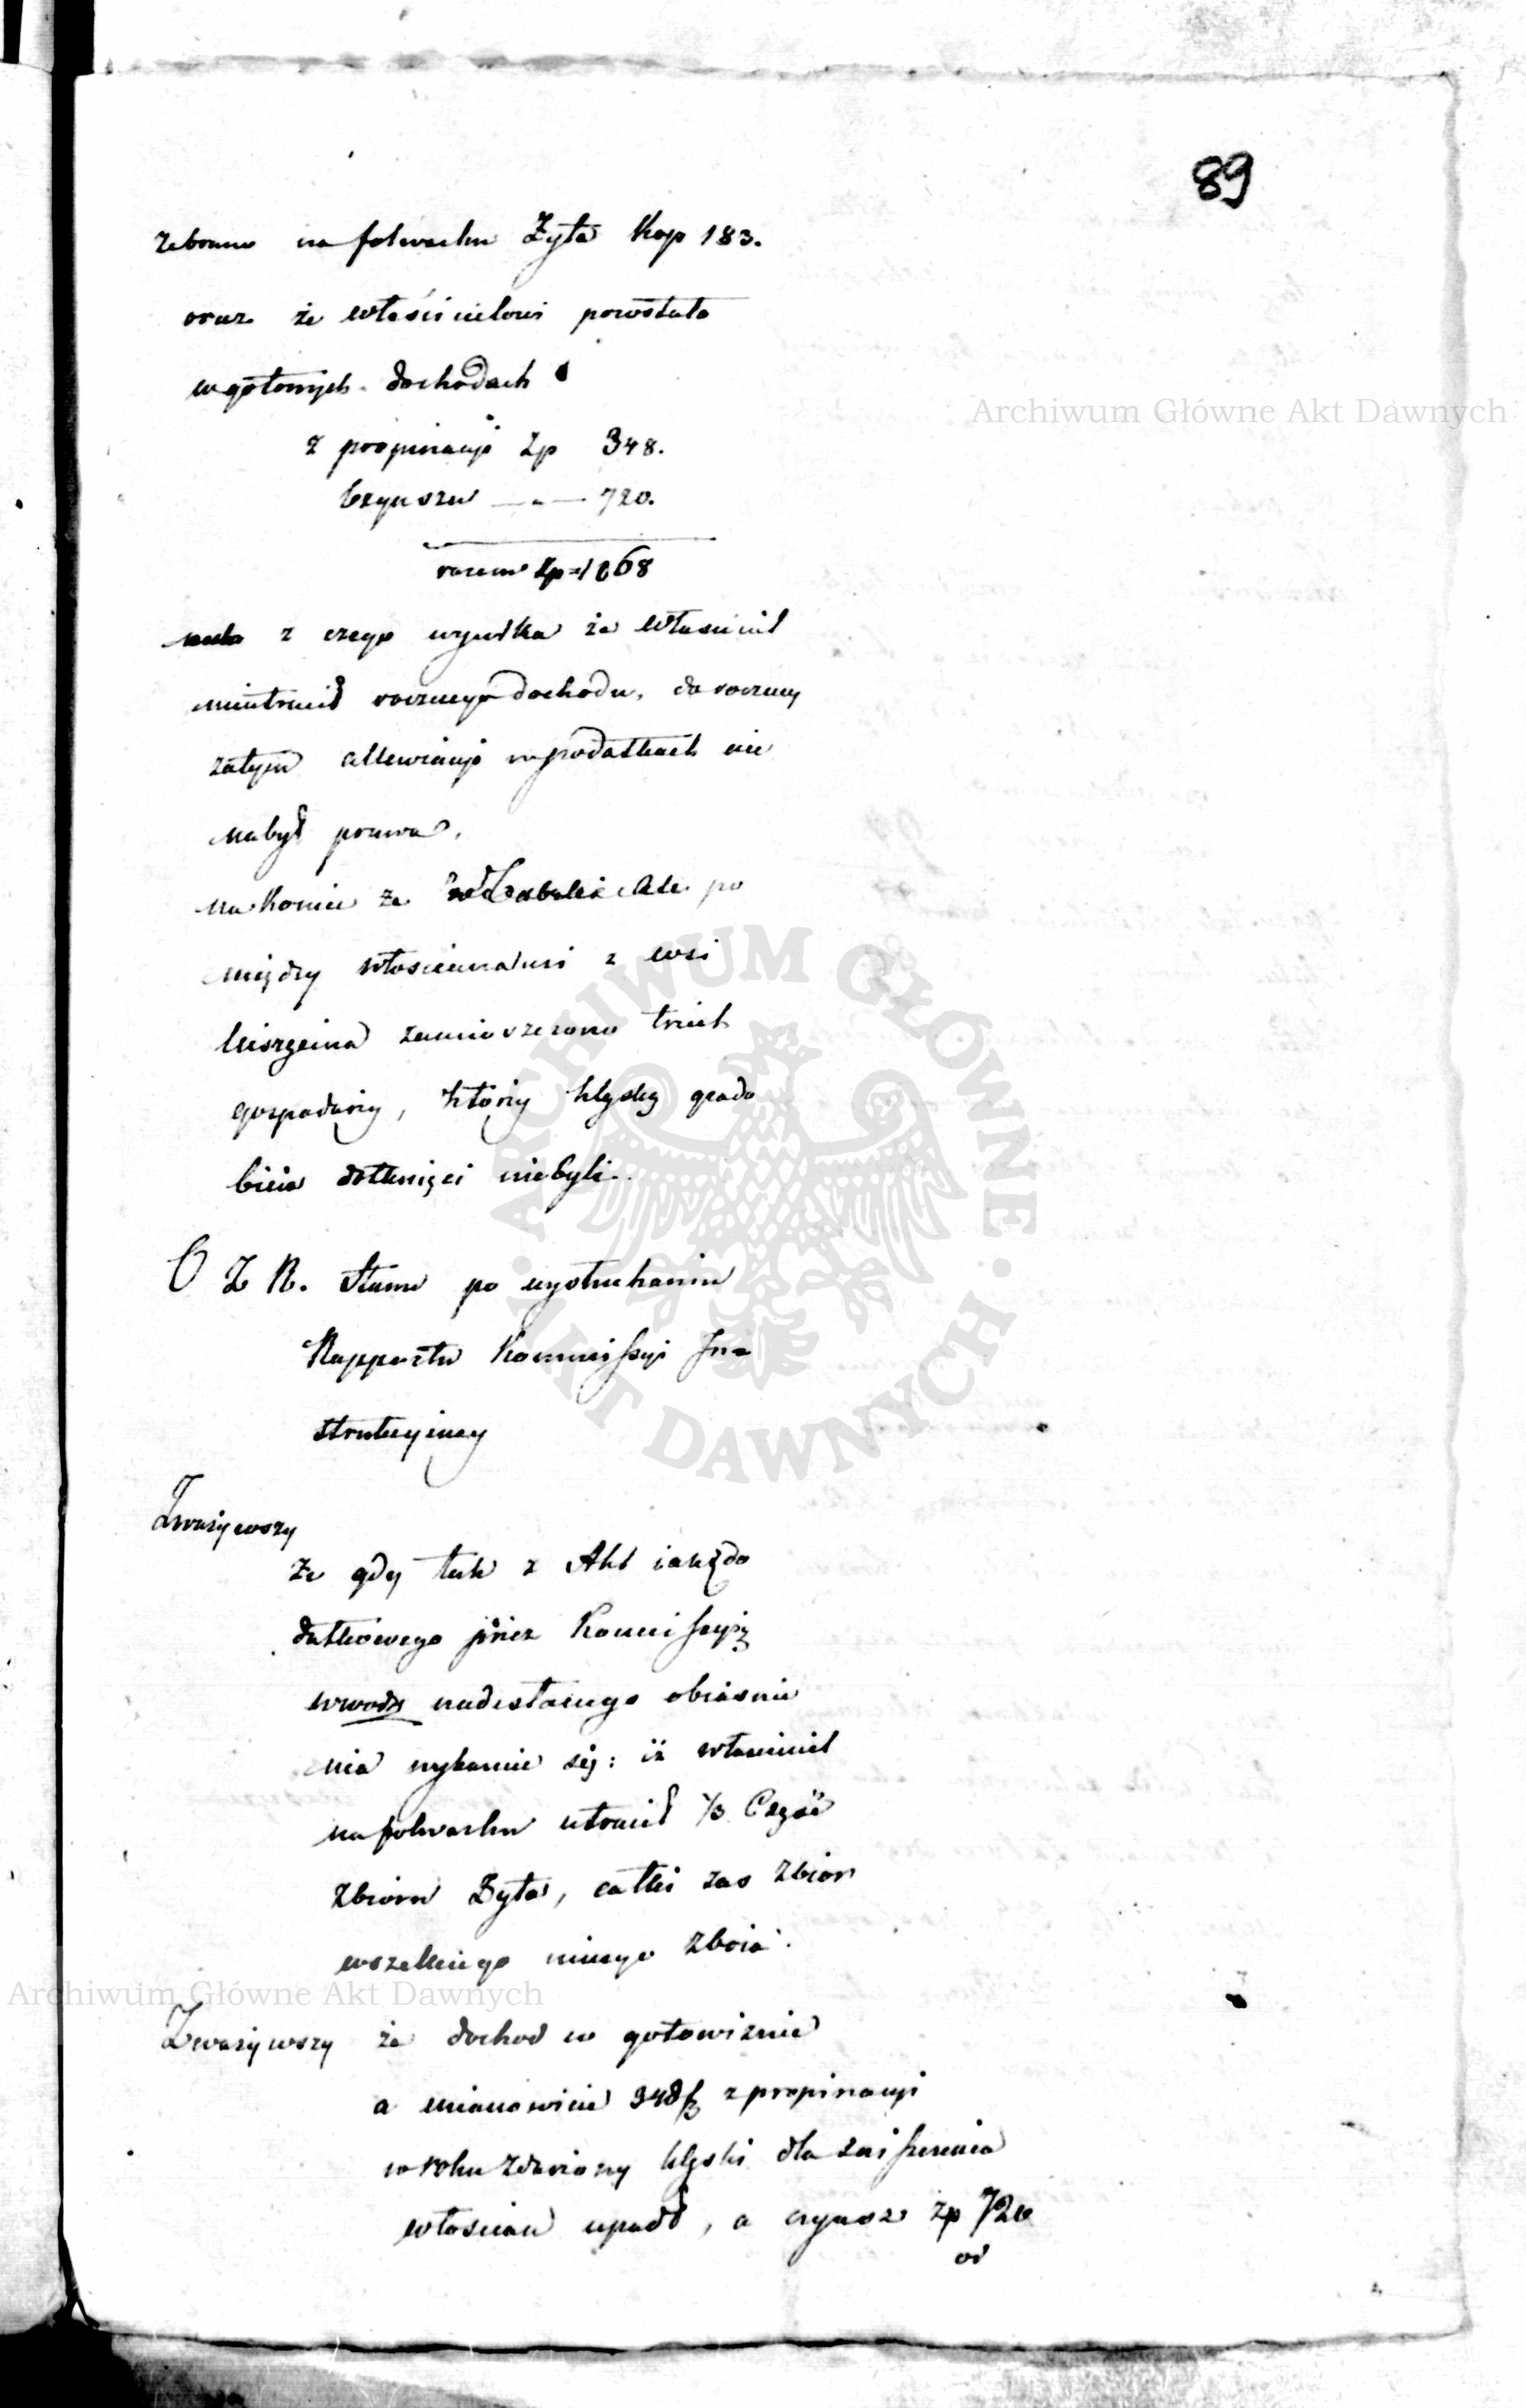 89
zebrano na folwarku Żyta Kop 183.
oraz że właścicielowi pozostało
w gotowych dochodach
z propinacyi Zp 348.
Czynszu — „ — 720.
razem Zp = 1068
z czego wynika że właściciel
nieutracił rocznego dochodu, do roczney
zatym allewiacyi w podatkach nie
nabył prawa,
nakoniec że w Tabelli Ale po
między włościanami z wsi
zamieszczono trzech
gospodarzy, którzy klęską grado
bicia dotknięci niebyli.
O Z R. Stanu po wysłuchaniu
Rapportu Kommissyi In=
strukcyiney
Zważywszy
Że gdy tak z Akt iak z do
datkowego przez Kommissyią
wwodz nadesłanego obiaśnie
nia wykazuie się: iż właściciel
na folwarku utracił 1/3 Część
Zbioru Żyta, całki zaś Zbior
wszelkiego innego Zboża.
Zważywszy że dochod w gotowiznie
a mianowicie 348 fz z propinacyi
w roku zdarzoney klęski dla zniszczenia
włościan upadł, a czynsz zp 720
od
Archiwum Główne Akt Dawnych
Archiwum Główne Akt Dawnych
ARCHIWUM GŁÓWNE AKT DAWNYCH